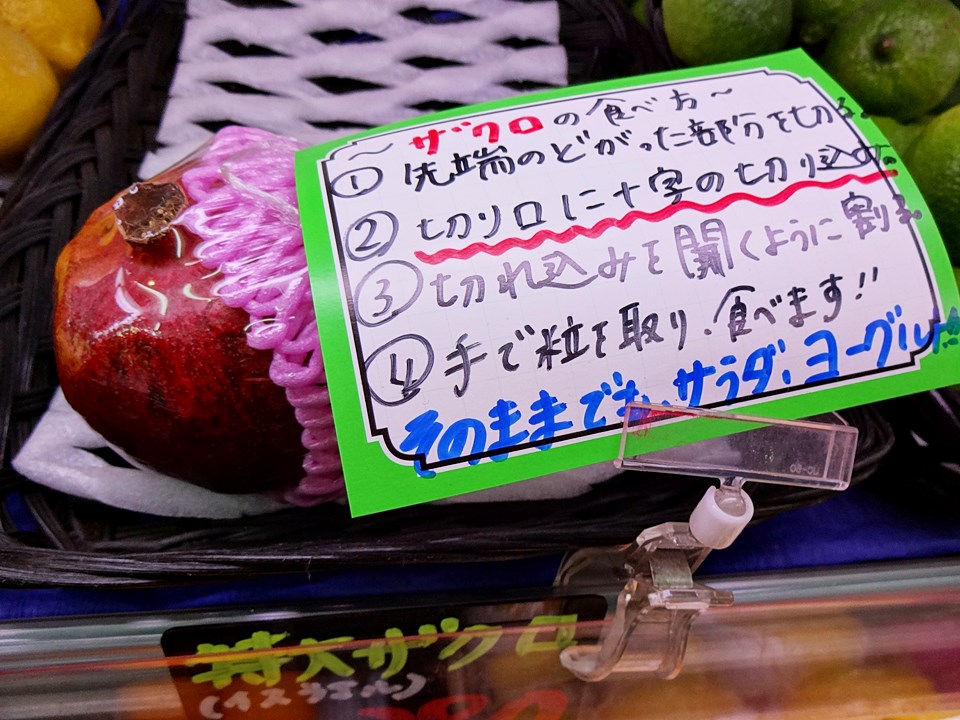 ～ザクロの食べ方～
① 先端のとがった部分を切る
② 切り口に十字の切り込み
③ 切れ込みを開くように割り
④ 手で粒を取り、食べます!!
そのままでも、サラダ、ヨーグル
特大ザクロ
(イスラエル)